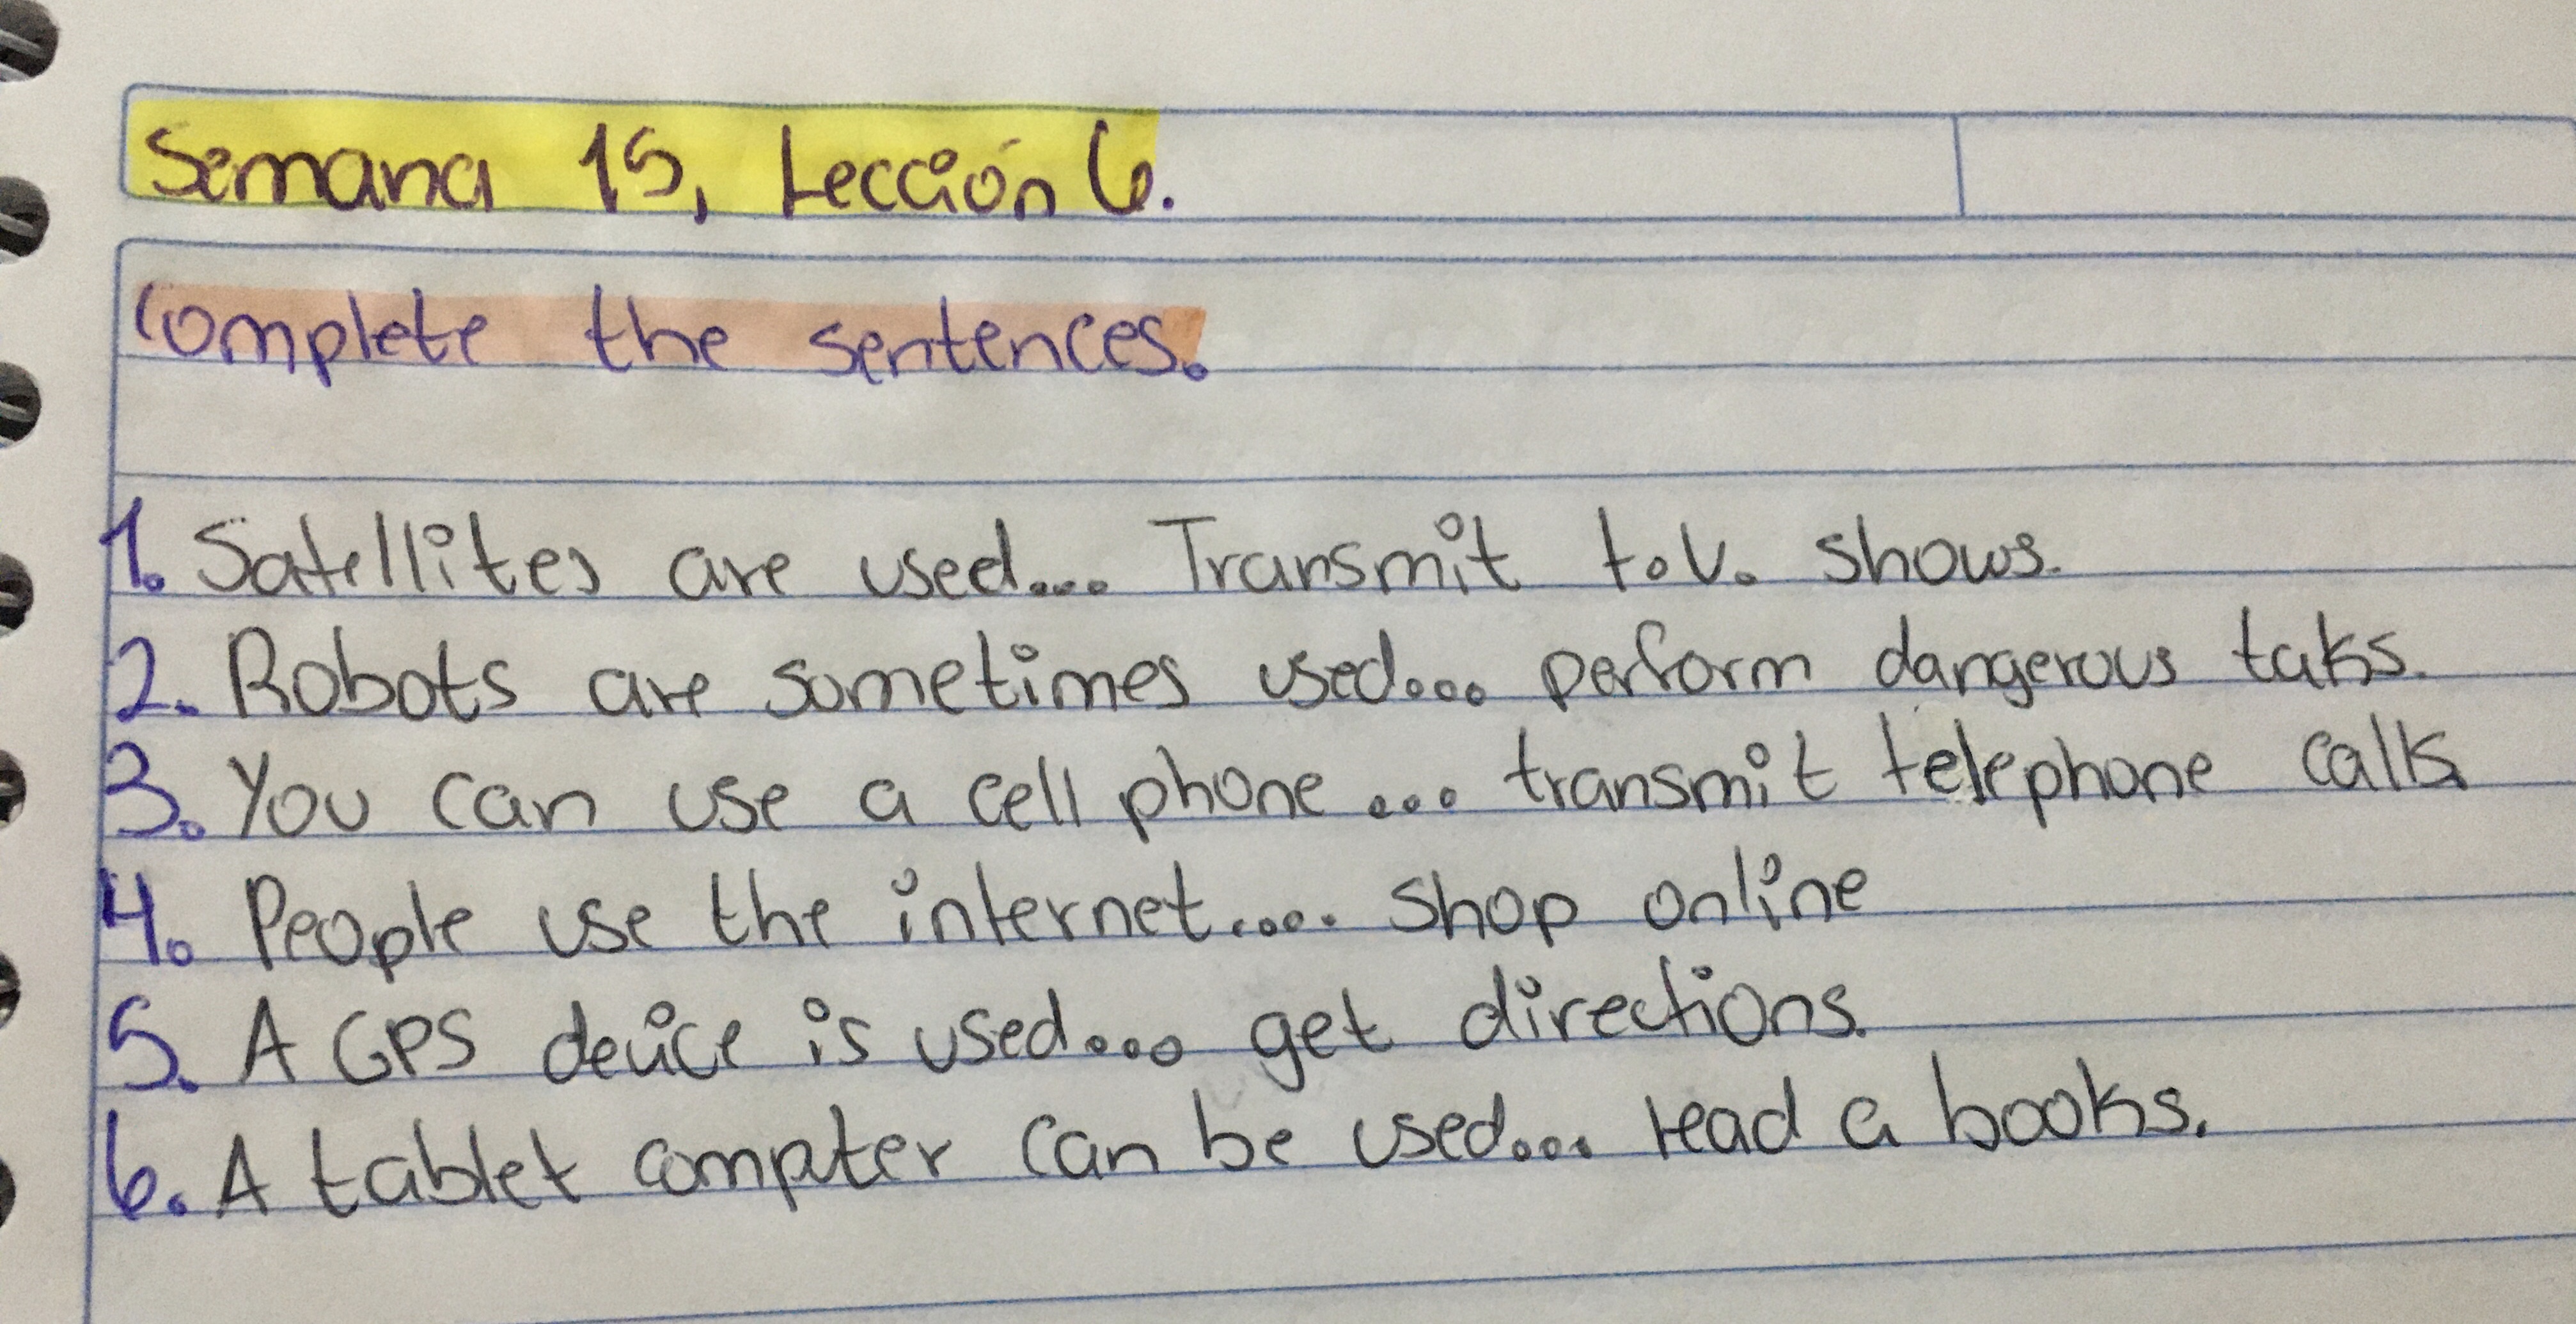 Semana 15, Lección 6.
Complete the sentences.
1. Satellites are used... Transmit t.v. shows.
2. Robots are sometimes used... perform dangerous taks.
3. You can use a cell phone... transmit telephone calls.
4. People use the internet.... shop online
5. A GPS device is used... get directions.
6. A tablet compter can be used... read a books.